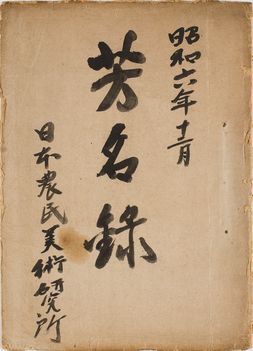 昭和六年十二月
芳名錄
日本農民美術研究所